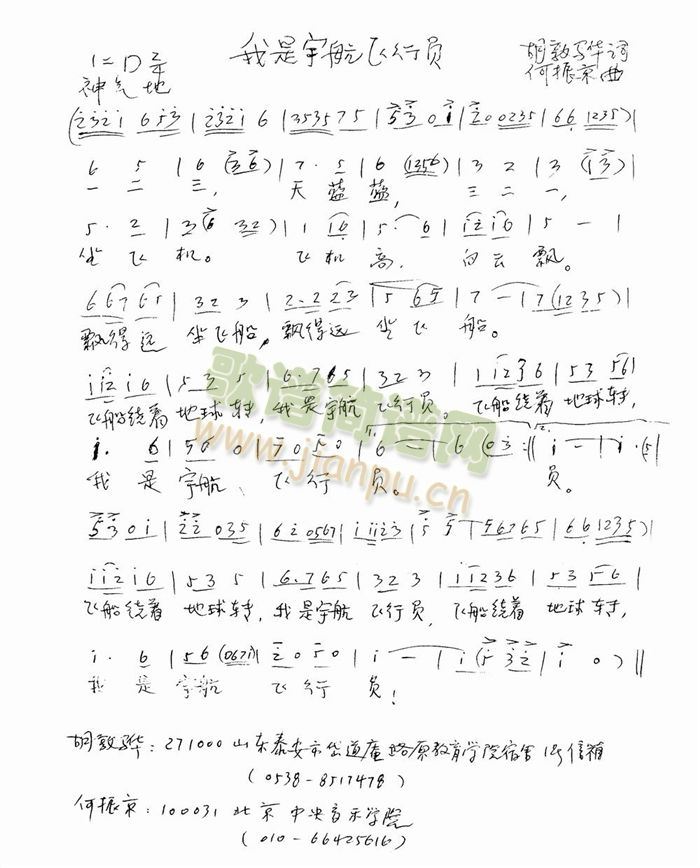 我是宇航飞行员
1=D 2/4
神气地
胡敦骅词
何振京曲
(2321 653 | 2321 6 | 353575 | 530i | 200235 | 661235) |
6 5 | 6 (36) | 7· 5 | 6 (1356) | 3 2 | 3 (13) |
一 二 三, 天 蓝 蓝, 三 二 一,
5· 2 | 3 (6 32) | 1 16 | 5· 6 | i2i6 | 5 - |
坐 飞 机。 飞 机 高, 白 云 飘。
66765 | 32 3 | 2·223 | 5 65 | 7 - | 7 (1235) |
飘得远 坐飞船, 飘得远 坐飞 船。
ii2i6 | 53 5 | 6·765 | 32 3 | ii236 | 53 56 |
飞船绕着 地球转, 我是宇航 飞行员。 飞船绕着 地球转,
i· 6 | 56 0 | 7050 | 6 - | 6 (03 :|| i - | i· (5 |
我 是 宇航 飞 行 员。 员。
530i | 22035 | 62 0567 | iii23 | 5 5 | 56765 | 661235) |
ii2i6 | 53 5 | 6·765 | 32 3 | ii236 | 53 56 |
飞船绕着 地球转, 我是宇航 飞行员, 飞船绕着 地球转,
i· 6 | 56 (067i) | 2050 | i - | i (5 32 | i 0) ||
我 是 宇航 飞 行 员!
歌谱简谱网
www.jianpu.cn
胡敦骅: 271000 山东泰安市岱道庵路原教育学院宿舍1号信箱
(0538-8517478)
何振京: 100031 北京中央音乐学院
(010-66425616)